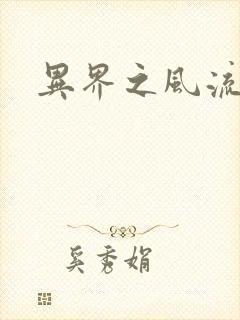 異界之風流
奚秀娟